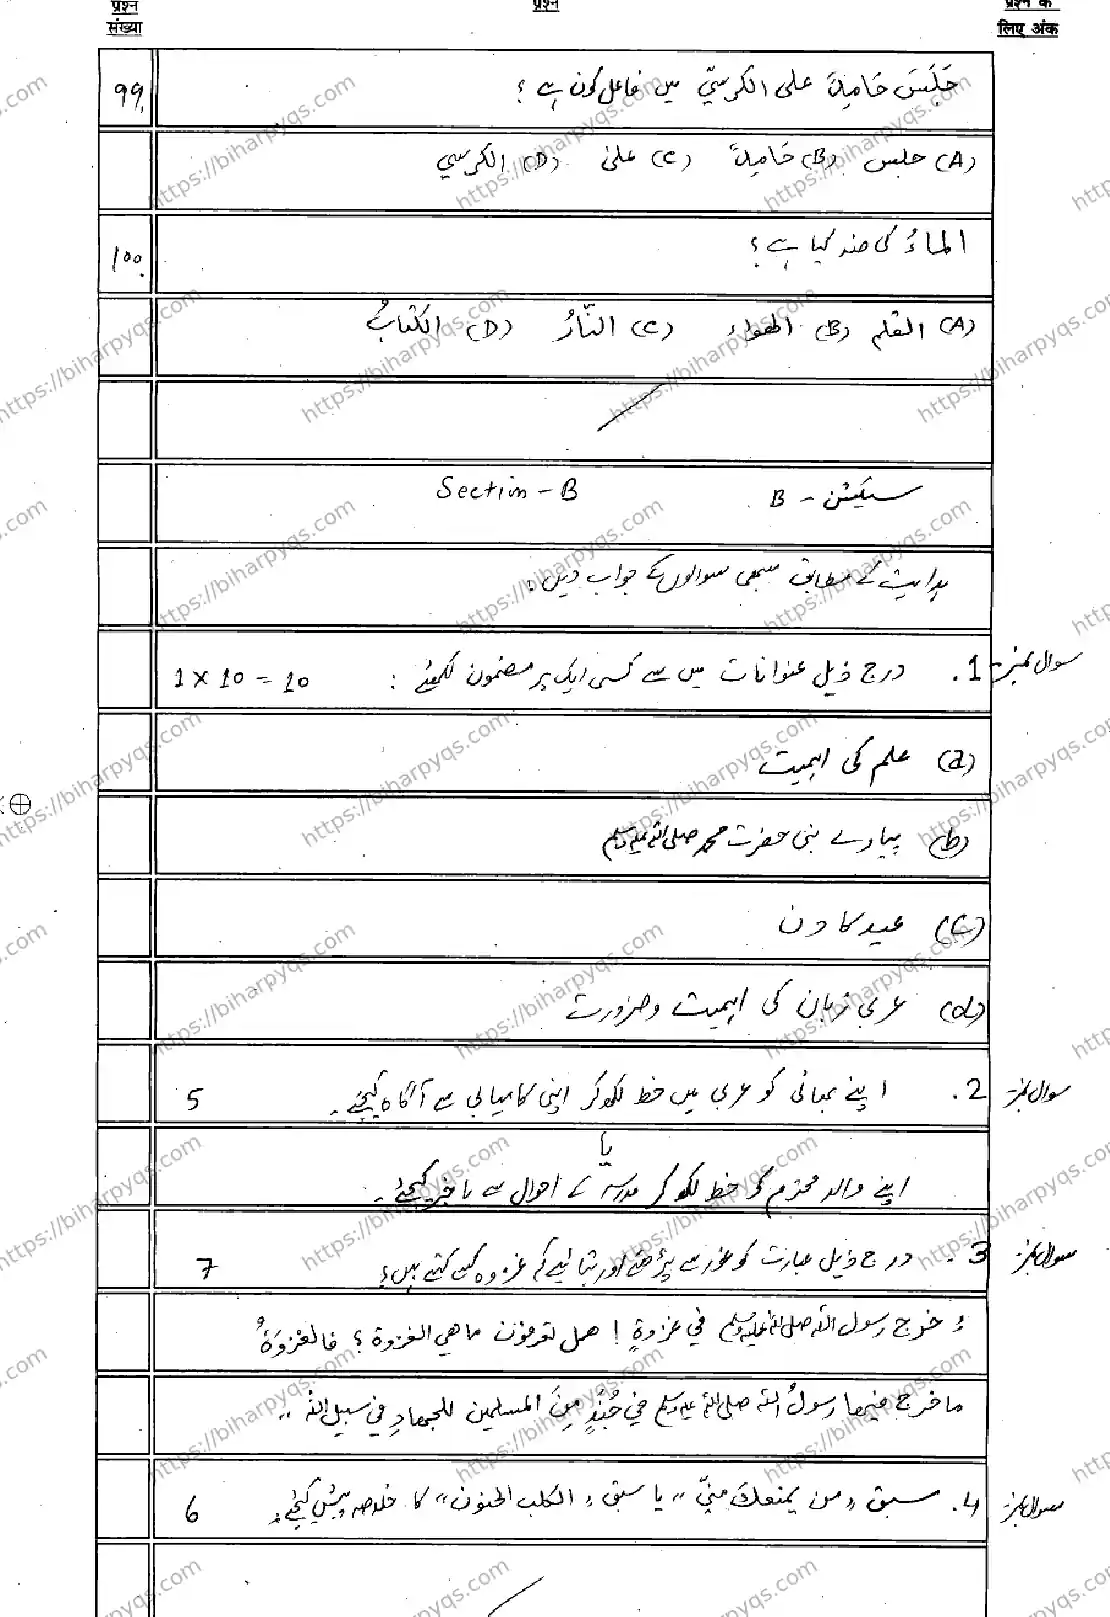 प्रश्न संख्या
प्रश्न
प्रश्न के लिए अंक
99. جَلَسَ حَامِدٌ على الكرسيِّ میں فاعل کون ہے ؟
(A) جلس (B) حَامِدٌ (C) علىٰ (D) الكرسي
100. الماءُ کی ضد کیا ہے ؟
(A) القلم (B) الهواء (C) النَّارُ (D) الكتابُ
سیکشن - B Section - B
ہدایت کے مطابق سبھی سوالوں کے جواب دیں :
سوال نمبر 1. درج ذیل عنوانات میں سے کسی ایک پر مضمون لکھئے : 1 x 10 = 10
(a) علم کی اہمیت
(b) پیارے نبی حضرت محمد صلی اللہ علیہ وسلم
(c) عید کا دن
(d) عربی زبان کی اہمیت و ضرورت
سوال نمبر 2. اپنے بھائی کو عربی میں خط لکھ کر اپنی کامیابی سے آگاہ کیجئے۔ 5
یا
اپنے والد محترم کو خط لکھ کر مدرسہ کے احوال سے باخبر کیجئے۔
سوال نمبر 3. درج ذیل عبارت کو غور سے پڑھئے اور بتائیے کہ غزوہ کسے کہتے ہیں؟ 7
خرج رسول الله صلى الله عليه وسلم في غزوةٍ ! هل تعرفون ما هي الغزوة ؟ فالغزوَةُ
ما خرج فيها رسولُ الله صلى الله عليه وسلم في جُنْدٍ مِنَ المسلمين للجهادِ في سبيل الله ،،
سوال نمبر 4. سبق ,,من يمنعك منيّ ،، یا سبق ,, الكلب الجنون،، کا خلاصہ پیش کیجئے۔ 6
https://biharpyqs.com